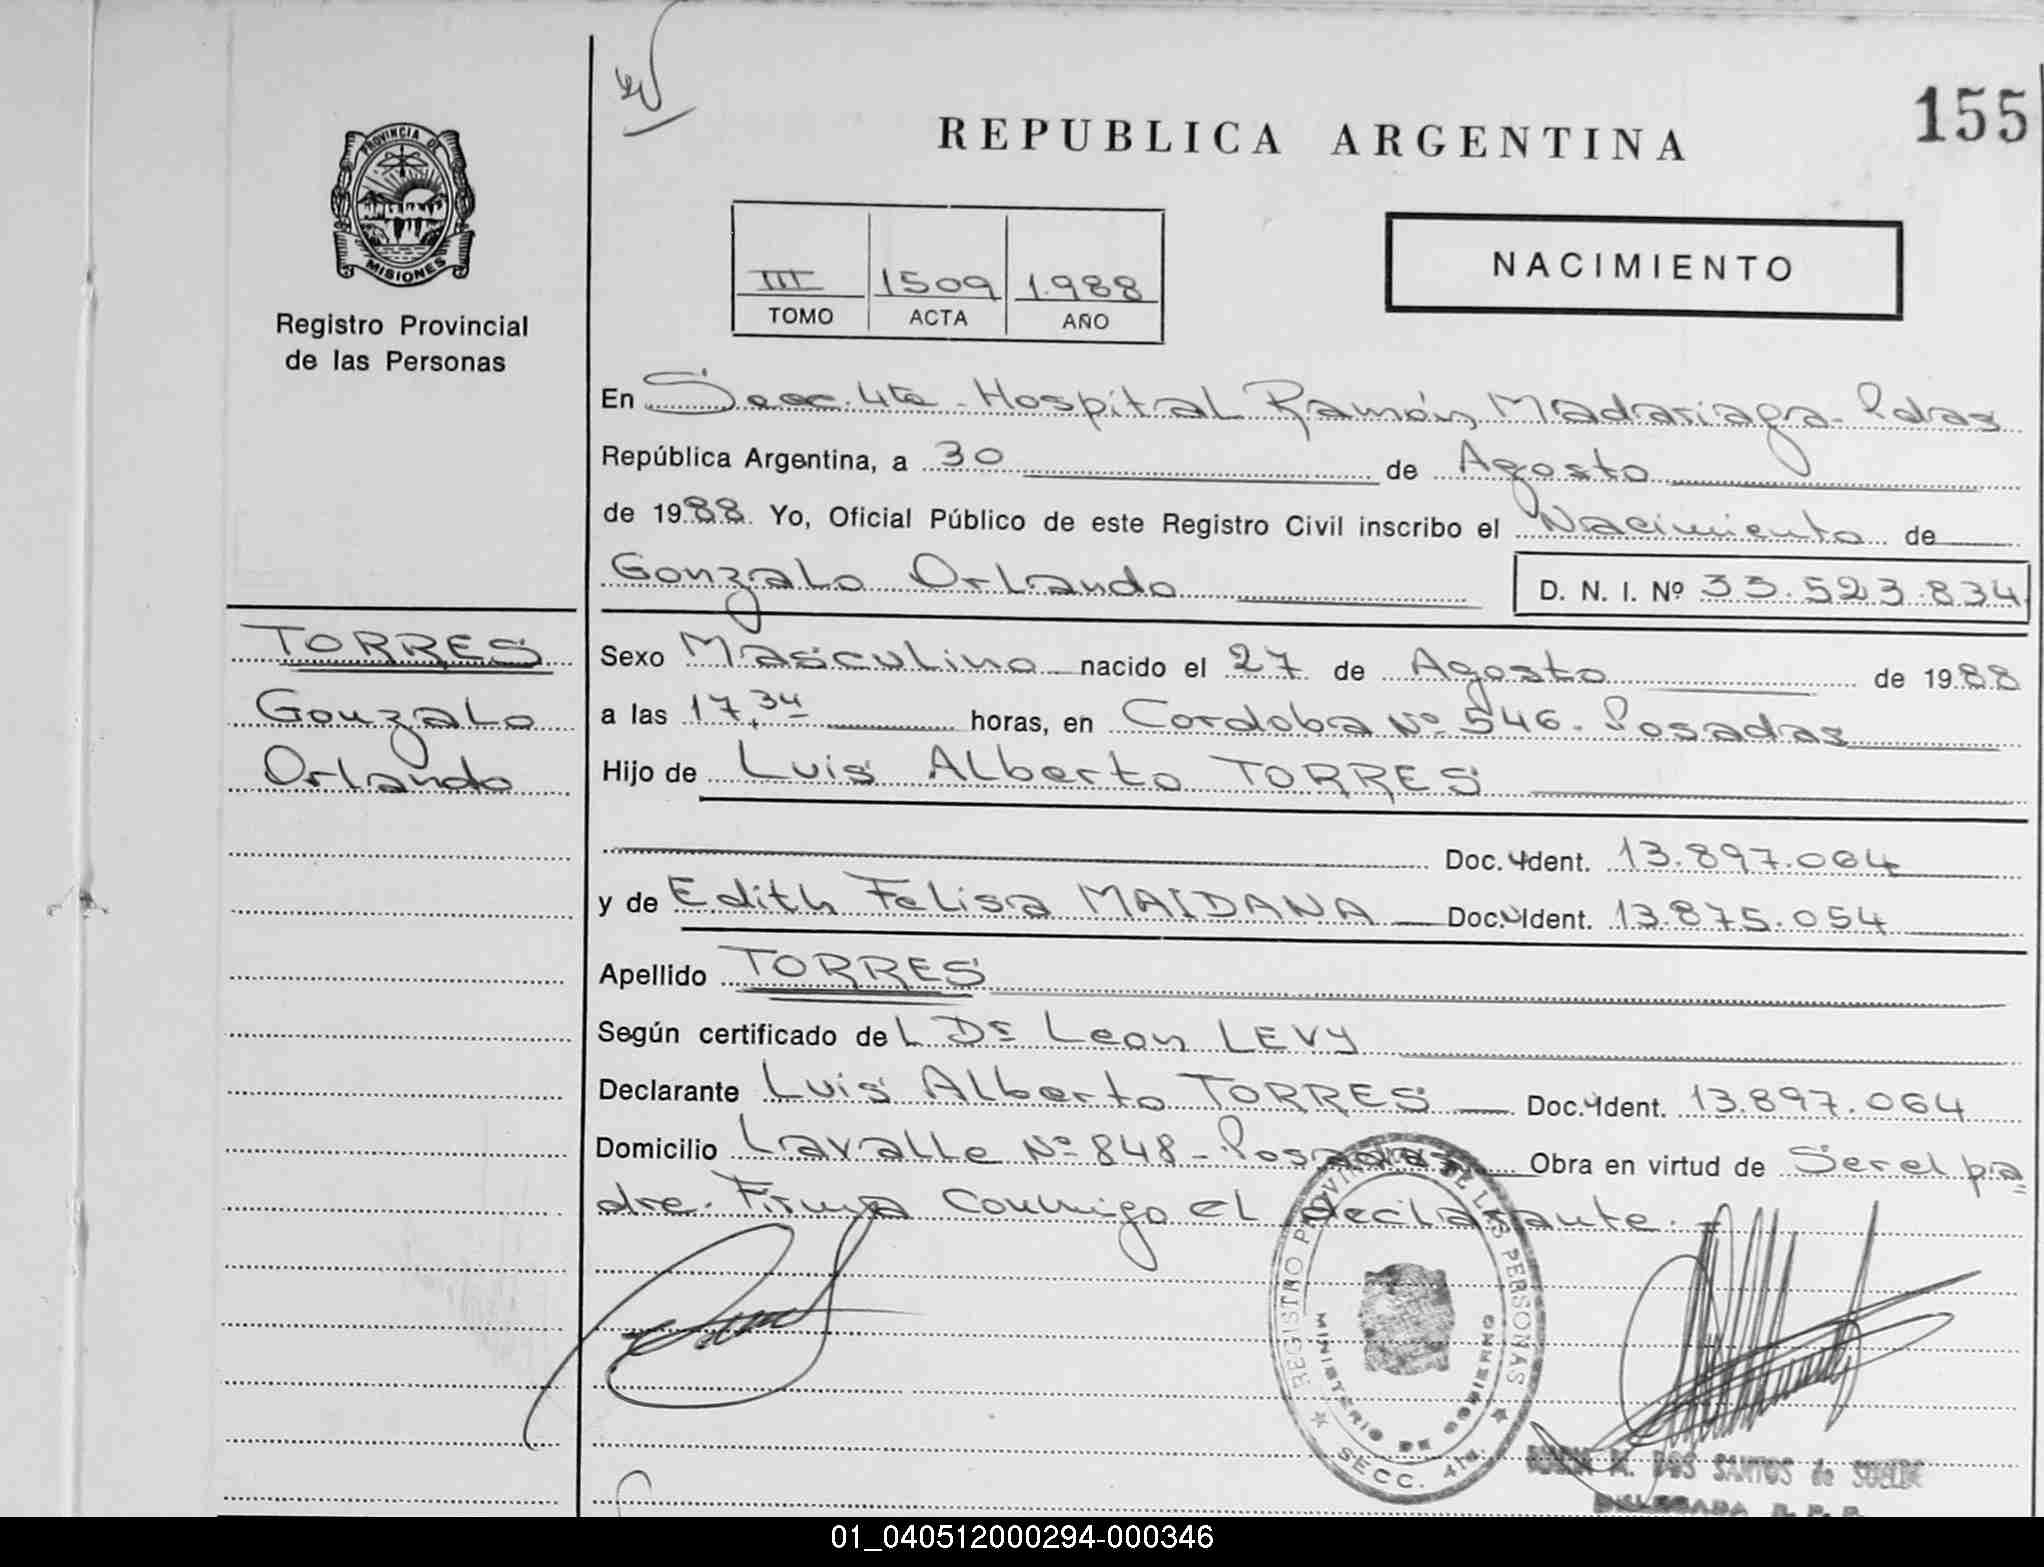 155
PROVINCIA DE
MISIONES
Registro Provincial
de las Personas
REPUBLICA ARGENTINA
NACIMIENTO
III 1509 1.988
TOMO ACTA AÑO
En Secc. 4ta - Hospital Ramón Madariaga - Pdas
República Argentina, a 30 de Agosto
de 1988. Yo, Oficial Público de este Registro Civil inscribo el Nacimiento de
Gonzalo Orlando D. N. I. Nº 33.523.834
TORRES
Gonzalo
Orlando
Sexo Masculino nacido el 27 de Agosto de 1988
a las 17,34 horas, en Cordoba Nº 546. Posadas
Hijo de Luis Alberto TORRES
Doc. Ident. 13.897.064
y de Edith Felisa MAIDANA Doc. Ident. 13.875.054
Apellido TORRES
Según certificado del Dr Leon LEVY
Declarante Luis Alberto TORRES Doc. Ident. 13.897.064
Domicilio Lavalle Nº 848 - Posadas Obra en virtud de Ser el pa
dre. Firma Conmigo el declarante.
REGISTRO PROVINCIAL DE LAS PERSONAS
MINISTERIO DE GOBIERNO
SECC. 4ta.
M. DOS SANTOS de
DELEGADA R. P. P.
01_040512000294-000346